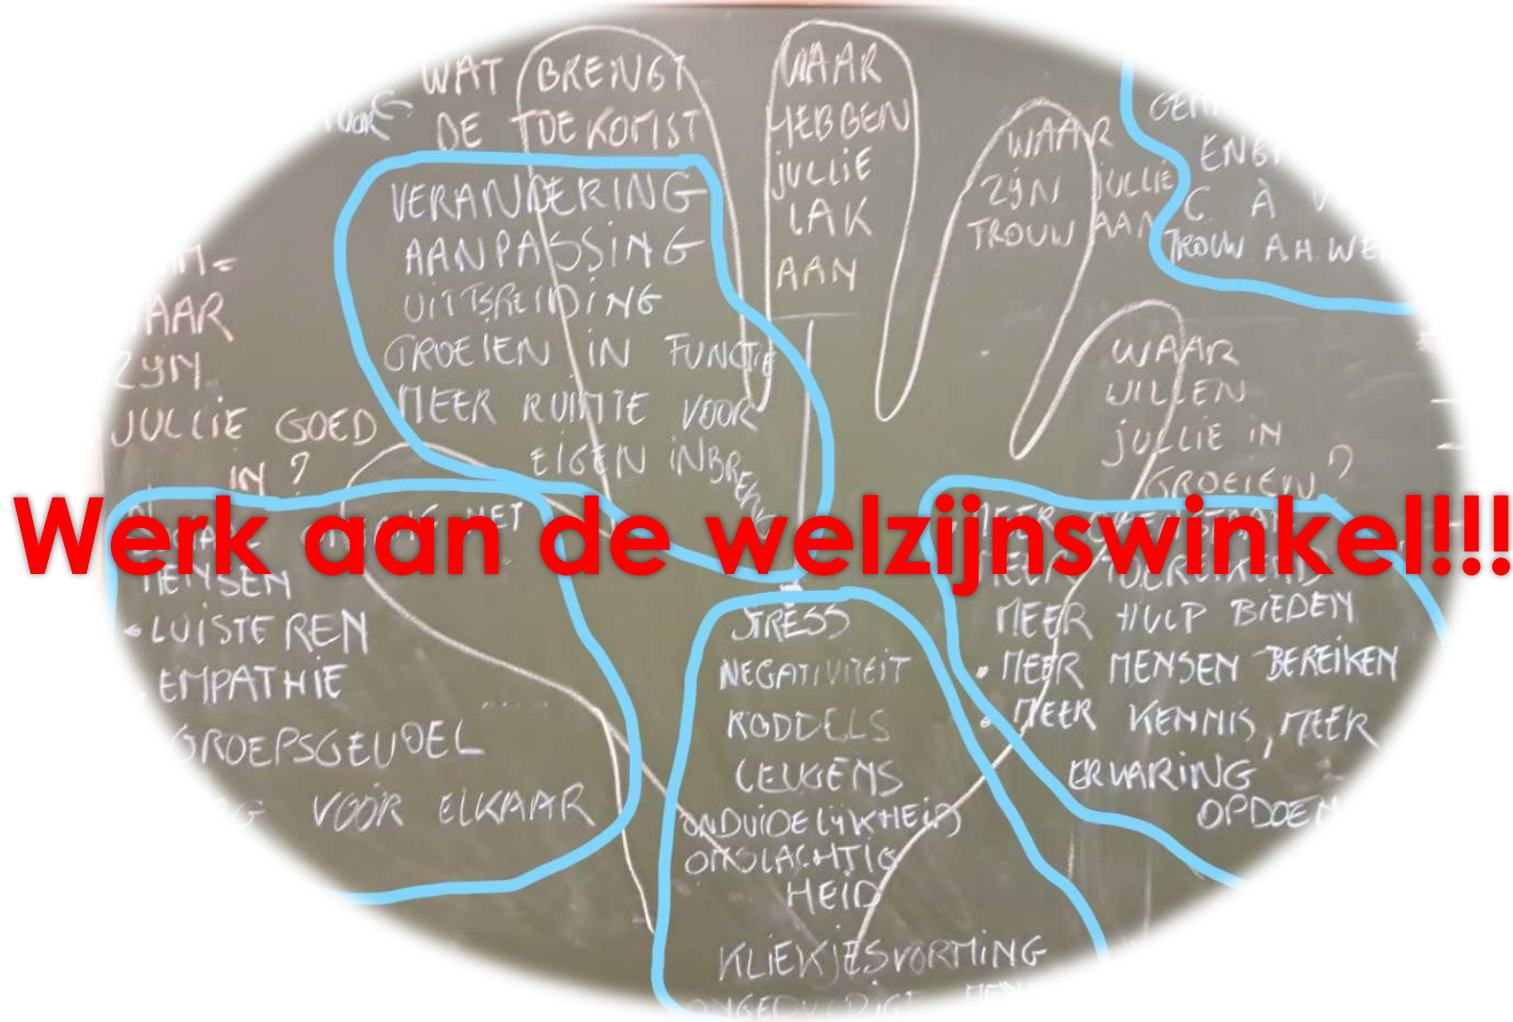 WAT BRENGT
DE TOEKOMST
VERANDERING
AANPASSING
UITBREIDING
GROEIEN IN FUNCTIE
MEER RUIMTE VOOR
EIGEN INBRENG
WAAR
HEBBEN
JULLIE
LAK
AAN
WAAR
ZIJN JULLIE
TROUW AAN
C. À
TROUW A.H. WE
WAAR
WILLEN
JULLIE IN
GROEIEN?
AAR
ZIJN
JULLIE GOED
IN?
Werk aan de welzijnswinkel!!!
MET
MENSEN
• LUISTEREN
• EMPATHIE
GROEPSGEVOEL
VOOR ELKAAR
STRESS
NEGATIVITEIT
RODDELS
LEUGENS
ONDUIDELIJKHEID
OMSLACHTIG
HEID
KLIEKJESVORMING
MEER
MEER HULP BIEDEN
• MEER MENSEN BEREIKEN
• MEER KENNIS, MEER
ERVARING
OPDOEN